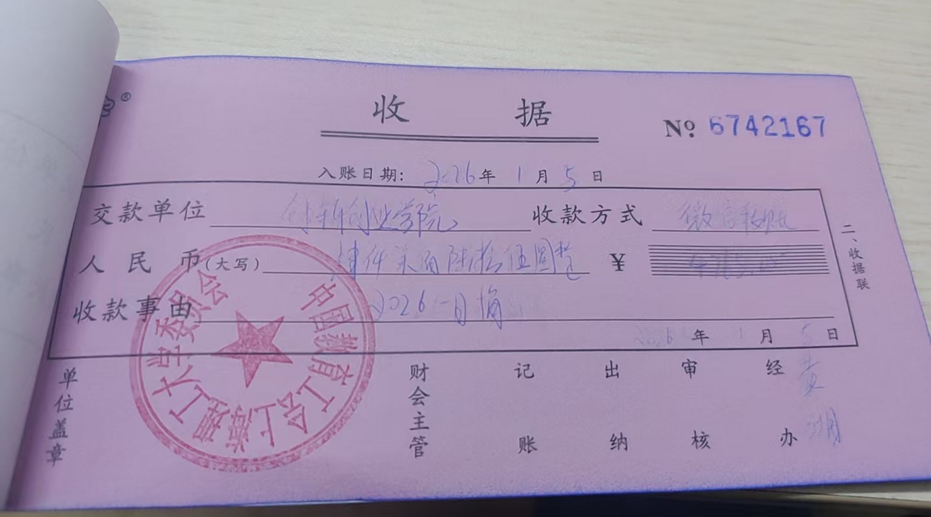 收据
№ 6742167
入账日期: 2026年1月5日
交款单位 创新创业学院 收款方式
人民币(大写) 伍圆整 ¥
收款事由 2026一月捐
2026年1月5日
二、收据联
单位盖章 财会主管 记账 出纳 审核 经办
中国教育工会上海理工大学委员会